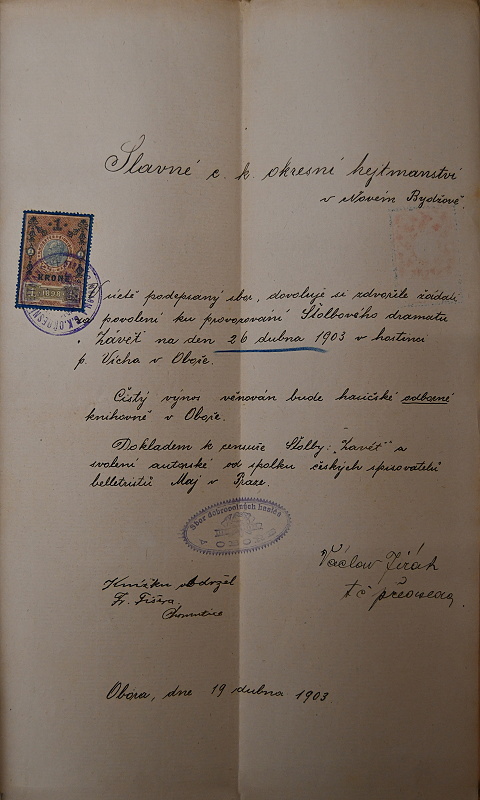 Slavné c. k. okresní hejtmanství
v Novém Bydžově.
1
KRONE
1898
V úctě podepsaný sbor, dovoluje si zdvořile žádati
za povolení ku provozování Štolbového dramatu
"Závěť" na den 26 dubna 1903 v hostinci
p. Vícha v Obоře.
Čistý výnos věnován bude hasičské odborné
knihovně v Oboře.
Dokladem k censuře Štolby: "Závěť" a
svolení autorské od spolku českých spisovatelů
belletristů Maj v Praze.
Sbor dobrovolných hasičů
OBORA
Václav Jirák
t č předseda
Knížku obdržel
Fr. Fišera
Chomutice
Obora, dne 19 dubna 1903